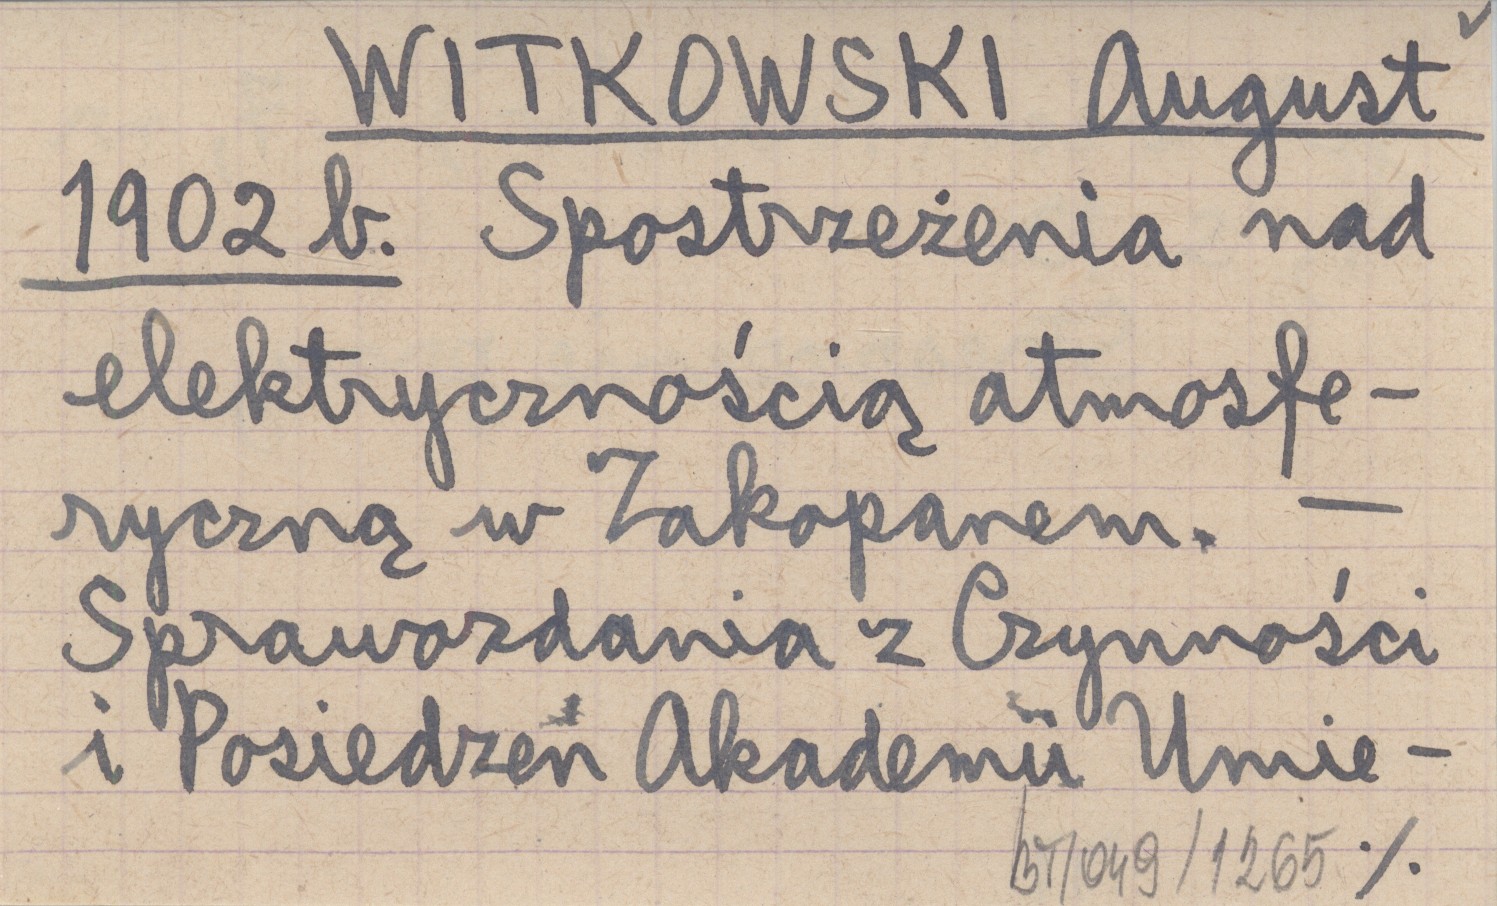 WITKOWSKI August
1902 b. Spostrzeżenia nad
elektrycznością atmosfe-
ryczną w Zakopanem. —
Sprawozdania z Czynności
i Posiedzeń Akademii Umie-
BT/049/1265 ./.